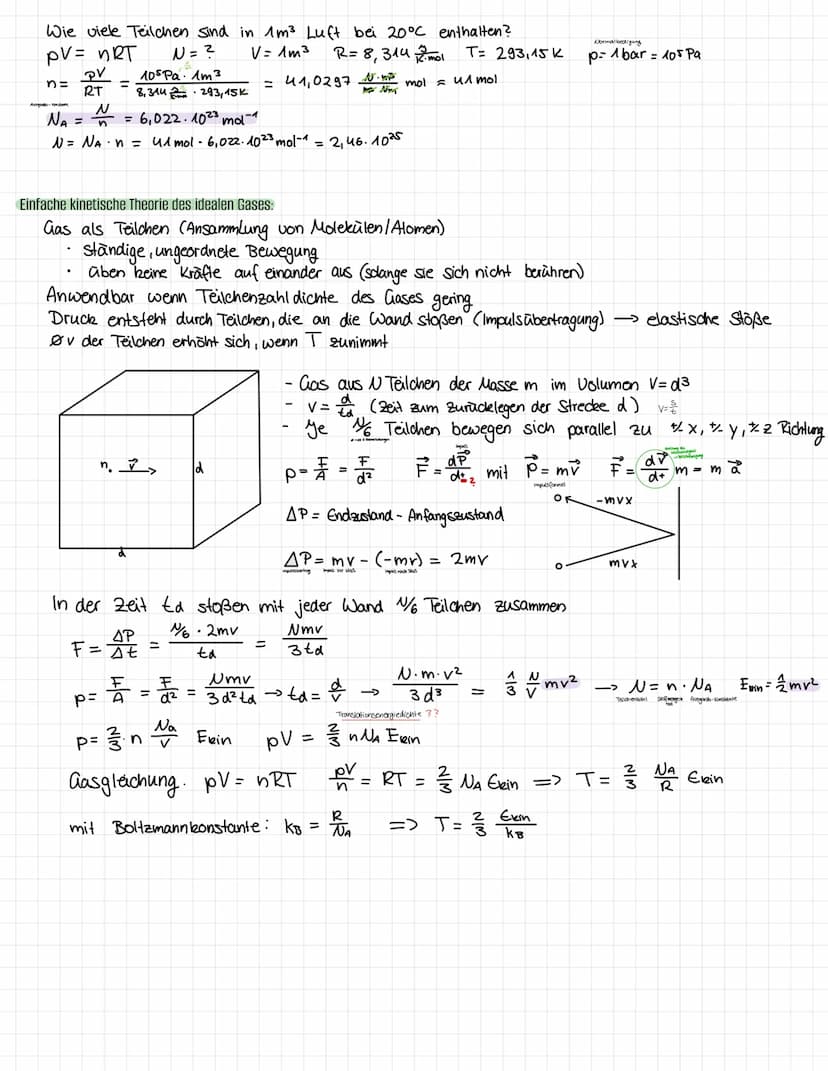 Wie viele Teilchen sind in 1m³ Luft bei 20°C enthalten?
pV = nRT N = ? V = 1m³ R = 8,314 J/K·mol T = 293,15 K p = 1 bar = 10⁵ Pa
n = pV/RT = 10⁵Pa · 1m³ / 8,314 · 293,15K = 41,0297 mol ≈ 41 mol
N_A = N/n = 6,022 · 10²³ mol⁻¹
N = N_A · n = 41 mol · 6,022 · 10²³ mol⁻¹ = 2,46 · 10²⁵
Einfache kinetische Theorie des idealen Gases:
Gas als Teilchen (Ansammlung von Molekülen/Atomen)
· ständige, ungeordnete Bewegung
· üben keine Kräfte auf einander aus (solange sie sich nicht berühren)
Anwendbar wenn Teilchenzahldichte des Gases gering
Druck entsteht durch Teilchen, die an die Wand stoßen (Impulsübertragung) → elastische Stöße
Øv der Teilchen erhöht sich, wenn T zunimmt
- Gas aus N Teilchen der Masse m im Volumen V = d³
- v = d/td (Zeit zum zurücklegen der Strecke d) v = s/t
- Je N/6 Teilchen bewegen sich parallel zu +/- x, +/- y, +/- z Richtung
n. v→ d
d
p = F/A = F/d² F→ = dP→/dt mit p→ = mv→ F→ = dv→/dt m = m a→
ΔP = Endzustand - Anfangszustand
-mvx
ΔP = mv - (-mv) = 2mv
mvx
In der Zeit td stoßen mit jeder Wand N/6 Teilchen zusammen
F = ΔP/Δt = N/6 · 2mv / td = Nmv / 3td
p = F/A = F/d² = Nmv / 3d²td → td = d/v → N·m·v² / 3d³ = 1/3 N/V mv² → N = n · N_A Ekin = 1/2 mv²
Translationsenergiedichte ??
p = 2/3 · n N_A/V Ekin pV = 2/3 n N_A Ekin
Gasgleichung. pV = nRT pV/n = RT = 2/3 N_A Ekin => T = 2/3 N_A/R Ekin
mit Boltzmannkonstante: k_B = R/N_A => T = 2/3 Ekin/k_B